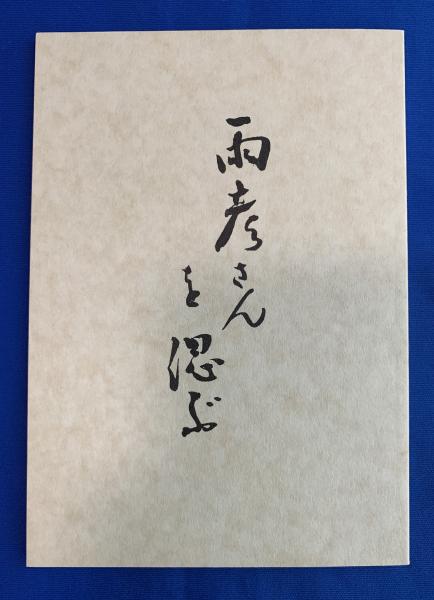 雨彦さん
を偲ぶ